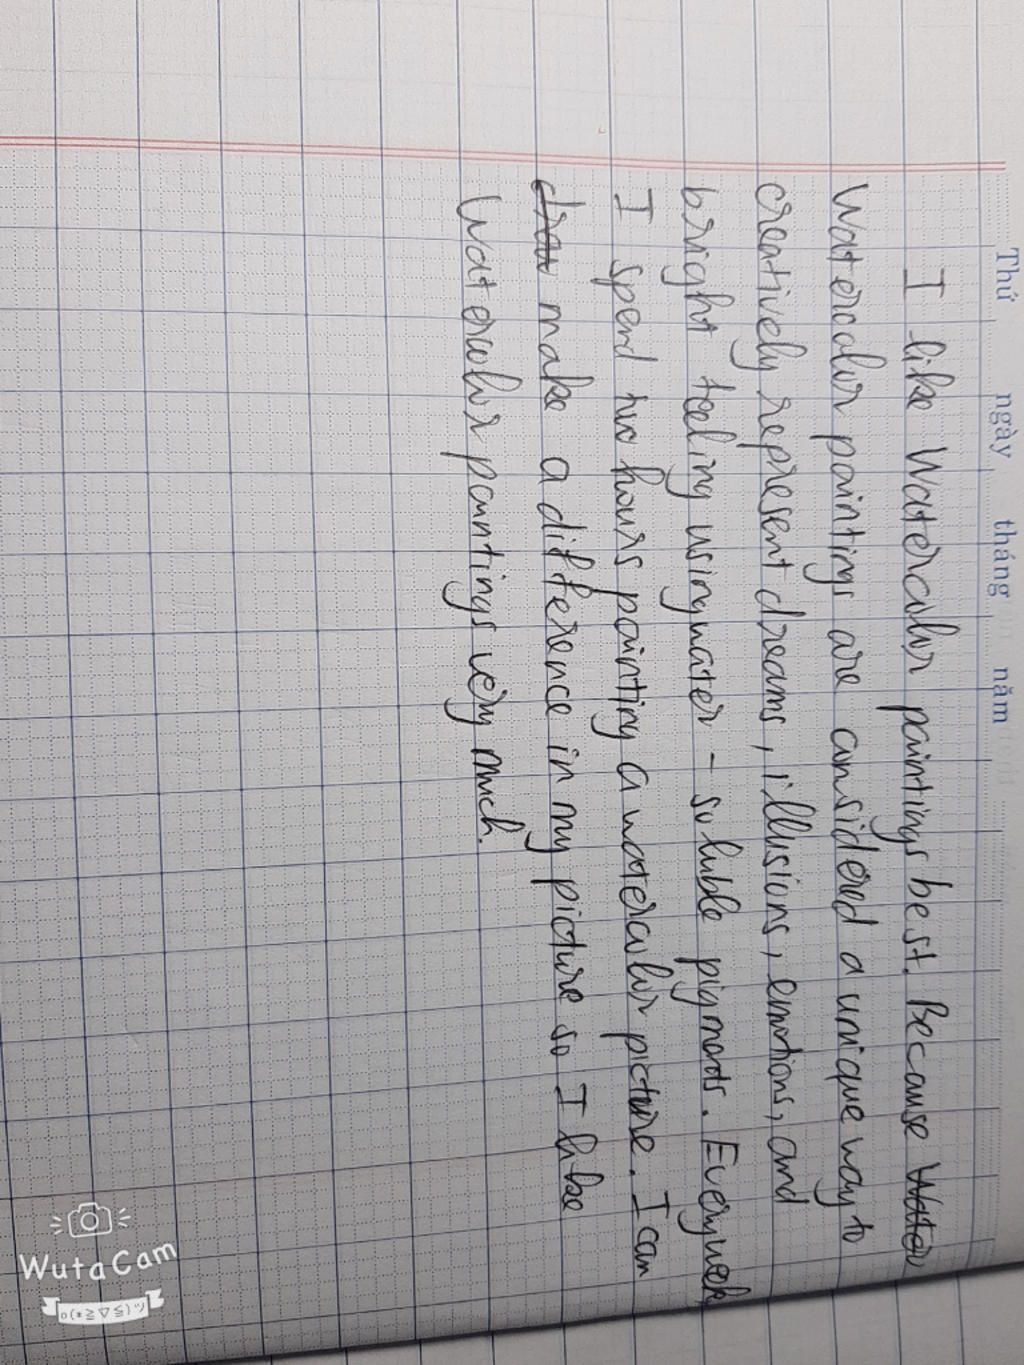 Thứ ngày tháng năm
I like Watercolor paintings best. Because
Watercolor paintings are considered a unique way to
creatively represent dreams, illusions, emotions, and
bright feeling using water - soluble pigments. Everyweek
I spend two hours painting a watercolor picture. I can
make a difference in my picture so I like
Watercolor paintings very much.
WutaCam
o(*≧▽≦)ツ